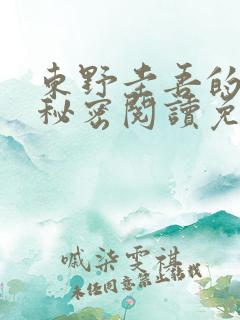 東野圭吾的
秘密閱讀免
戚柒雯祺
未经同意禁止转载